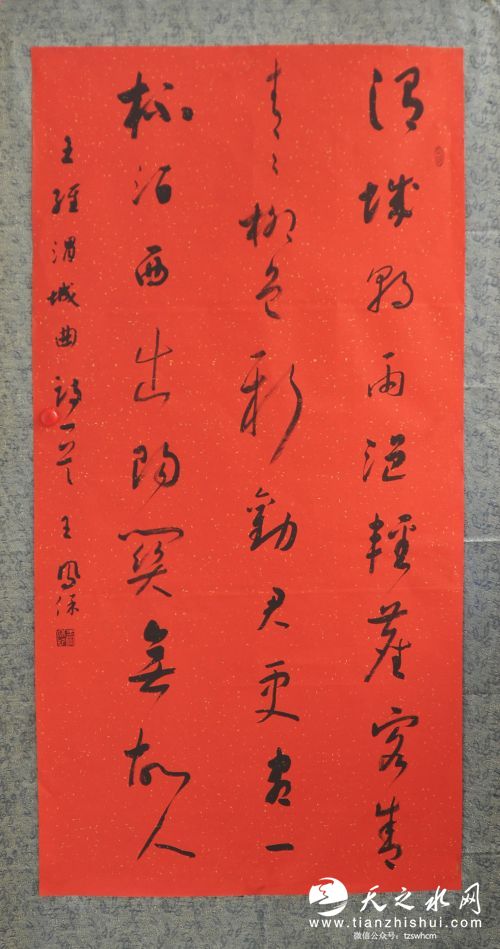 渭城朝雨浥輕塵客舍
青々柳色新勸君更盡一
杯酒西出陽關無故人
王維渭城曲詩一首 王鳳保
天之水网
www.tianzhishui.com
微信公众号：tzswhcm